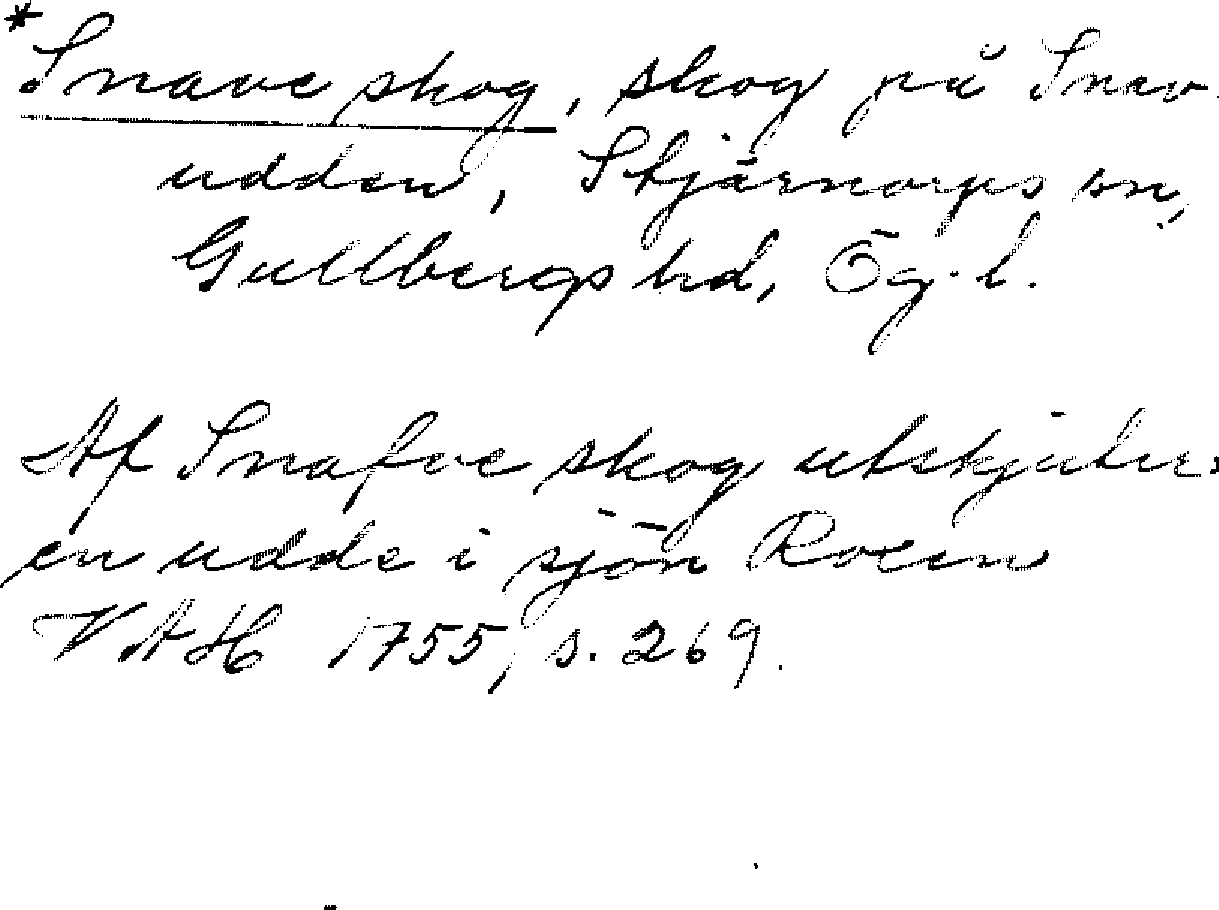 *Snave skog, skog på Snav-
udden, Stjärnorps sn,
Gullbergs hd, Ög. l.
Af Snafve skog utskjuter
en udde i sjön Roxen
VAH 1755, s. 269.